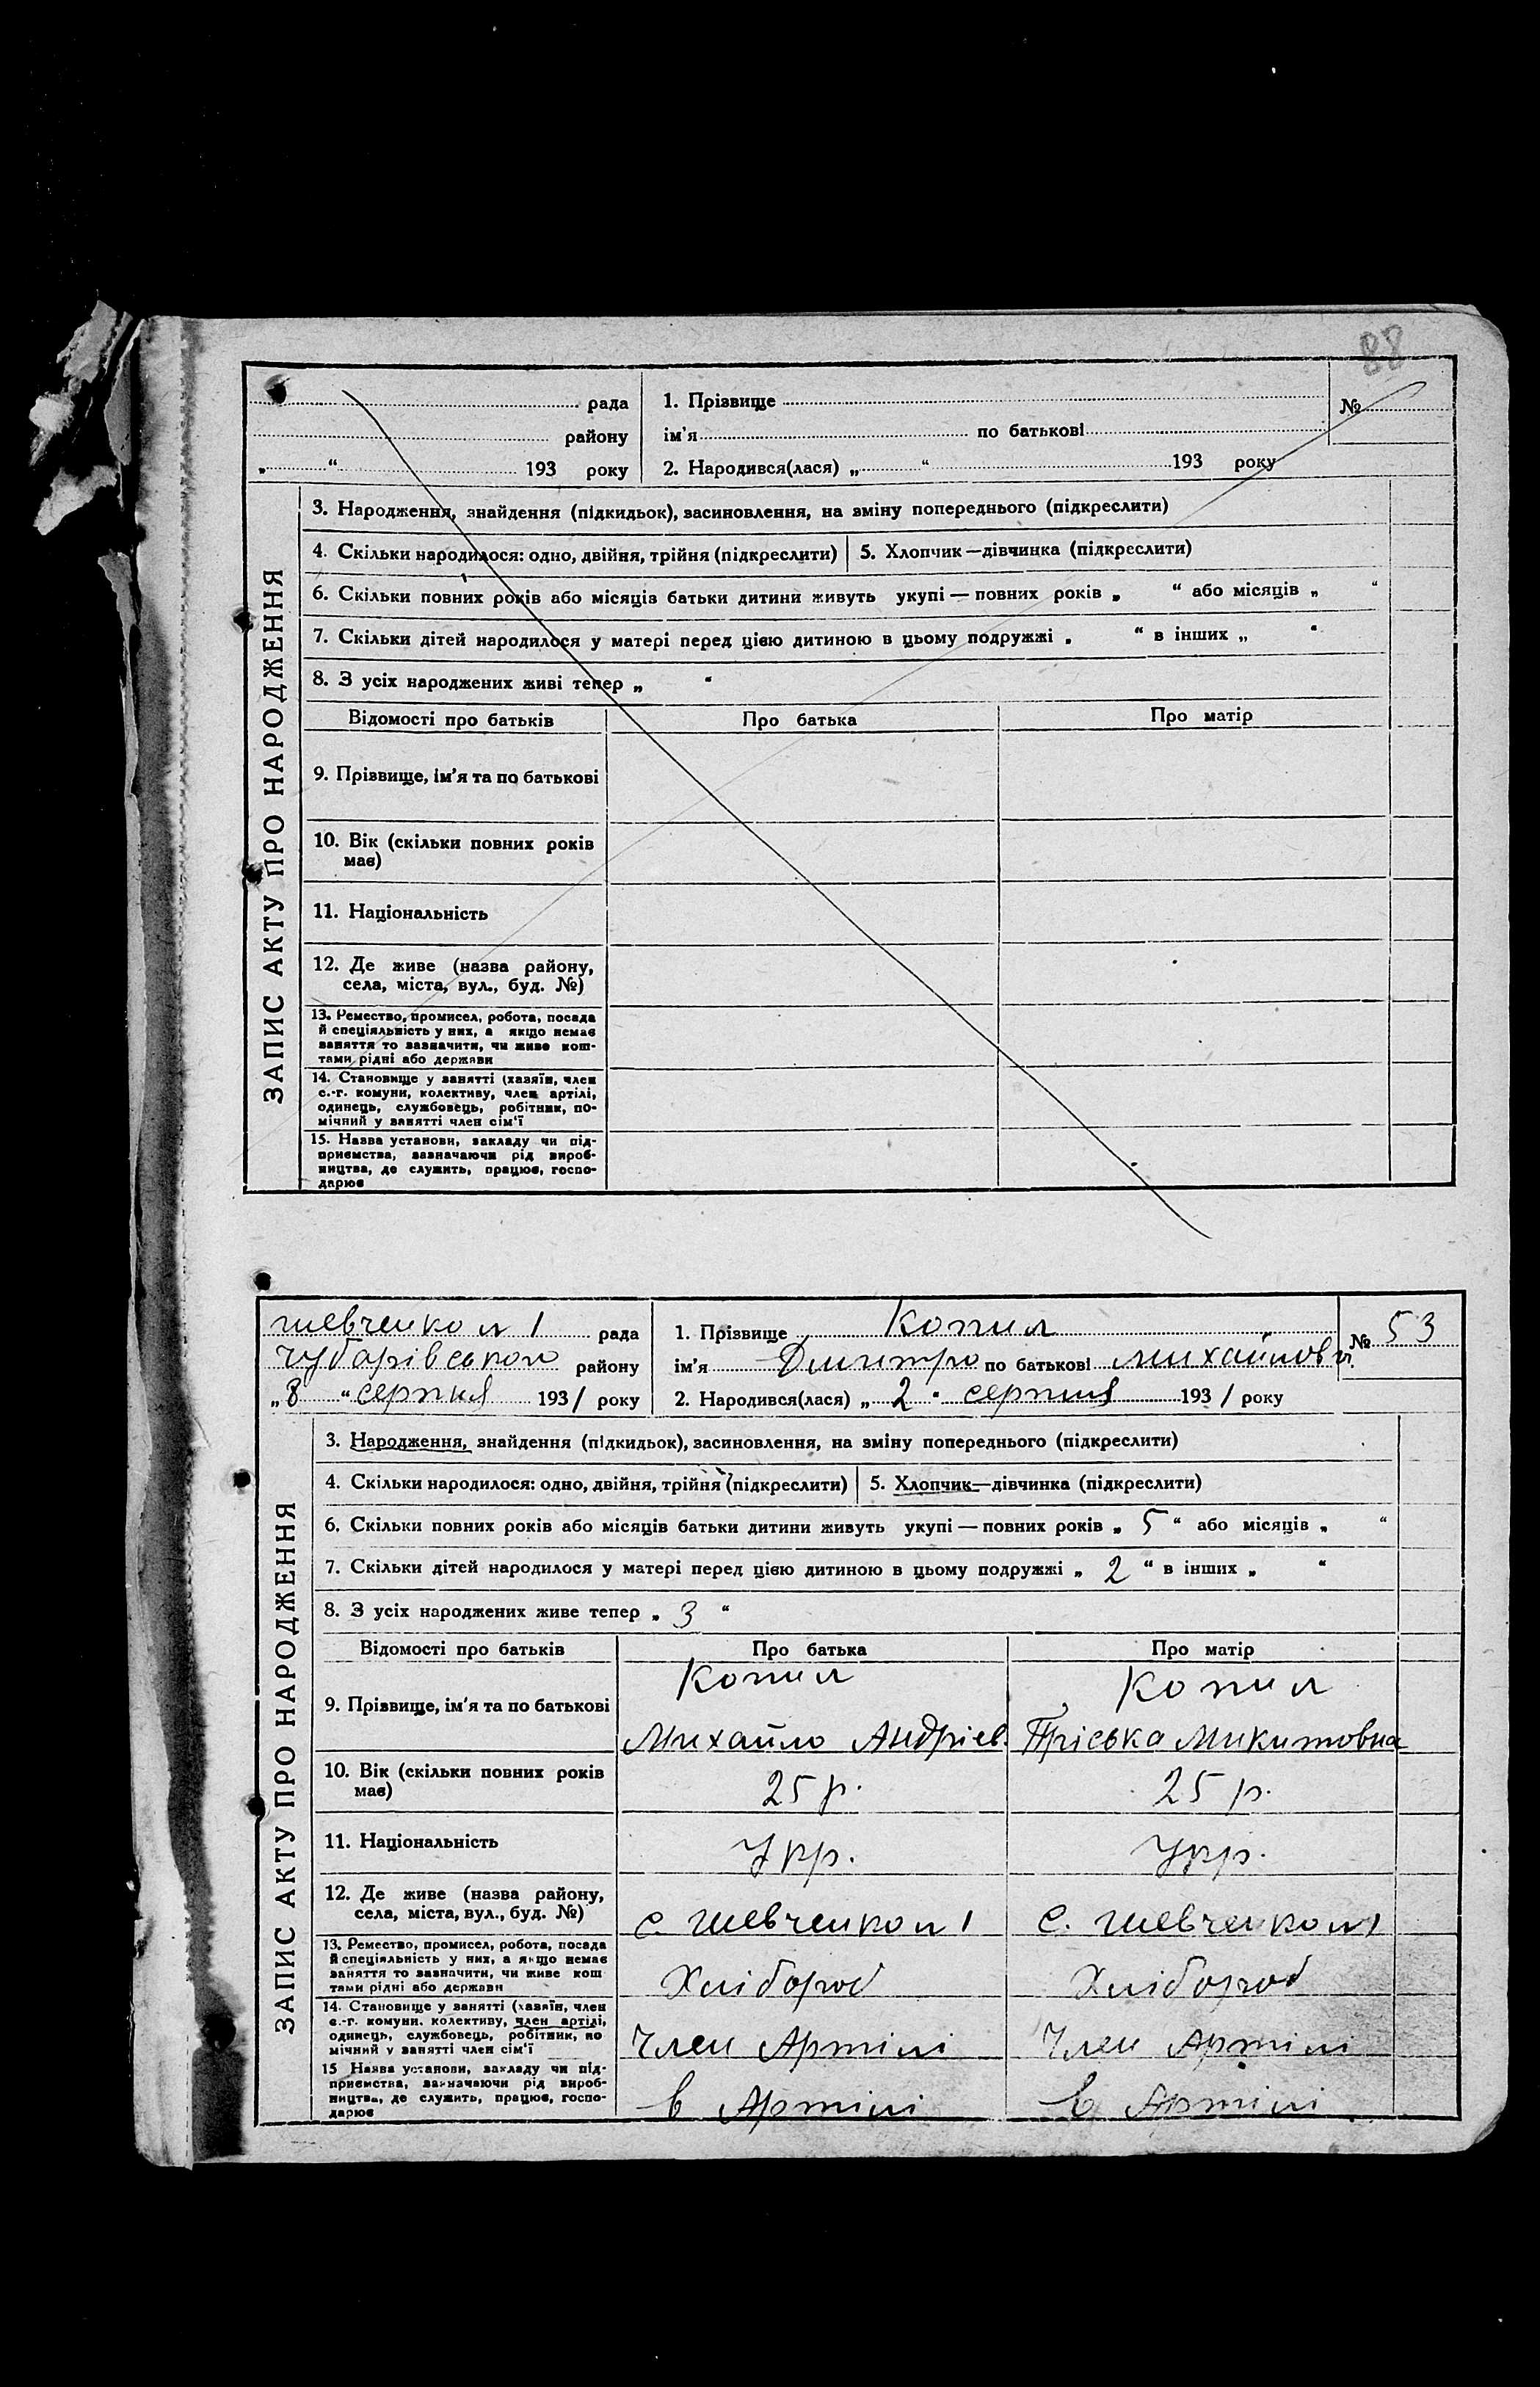 88
рада
району
„ “ 193 року
1. Прізвище
№
ім'я по батькові
2. Народився(лася) „ “ 193 року
ЗАПИС АКТУ ПРО НАРОДЖЕННЯ
3. Народження, знайдення (підкидьок), засиновлення, на зміну попереднього (підкреслити)
4. Скільки народилося: одно, двійня, трійня (підкреслити) 5. Хлопчик—дівчинка (підкреслити)
6. Скільки повних років або місяців батьки дитини живуть укупі — повних років „ “ або місяців „ “
7. Скільки дітей народилося у матері перед цією дитиною в цьому подружжі „ “ в інших „ “
8. З усіх народжених живі тепер „ “
Відомості про батьків Про батька Про матір
9. Прізвище, ім'я та по батькові
10. Вік (скільки повних років
має)
11. Національність
12. Де живе (назва району,
села, міста, вул., буд. №)
13. Ремество, промисел, робота, посада
й спеціяльність у них, а якщо немає
заняття то зазначити, чи живе кош-
тами рідні або держави
14. Становище у занятті (хазяїн, член
с.-г. комуни, колективу, член артілі,
одинець, службовець, робітник, по-
мічний у занятті член сім'ї
15. Назва установи, закладу чи під-
приємства, зазначаючи рід вироб-
ництва, де служить, працює, госпо-
дарює
Шевченко №1 рада
Чубарівського району
„8 “ серпня 1931 року
1. Прізвище Копил
№ 53
ім'я Дмитро по батькові Михайлович
2. Народився(лася) „ 2 “ серпня 1931 року
ЗАПИС АКТУ ПРО НАРОДЖЕННЯ
3. Народження, знайдення (підкидьок), засиновлення, на зміну попереднього (підкреслити)
4. Скільки народилося: одно, двійня, трійня (підкреслити) 5. Хлопчик—дівчинка (підкреслити)
6. Скільки повних років або місяців батьки дитини живуть укупі — повних років „ 5 “ або місяців „ “
7. Скільки дітей народилося у матері перед цією дитиною в цьому подружжі „ 2 “ в інших „ “
8. З усіх народжених живе тепер „ 3 “
Відомості про батьків Про батька Про матір
Копил Копил
9. Прізвище, ім'я та по батькові
Михайло Андрієв. Пріська Микитовна
10. Вік (скільки повних років
має)
25 р. 25 р.
11. Національність Укр. Укр.
12. Де живе (назва району,
села, міста, вул., буд. №)
с. Шевченко №1 с. Шевченко №1
13. Ремество, промисел, робота, посада
й спеціяльність у них, а якщо немає
заняття то зазначити, чи живе кош
тами рідні або держави
Хлібороб Хлібороб
14. Становище у занятті (хазяїн, член
с.-г. комуни, колективу, член артілі,
одинець, службовець, робітник, по
мічний у занятті член сім'ї
Член Артілі Член Артілі
15 Назва установи, закладу чи під-
приємства, зазначаючи рід вироб-
ництва, де служить, працює, госпо-
дарює
в Артілі в Артілі